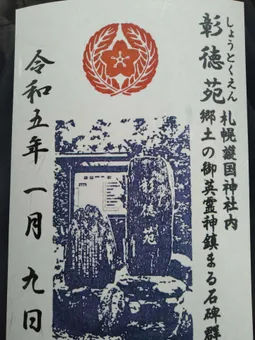 しょうとくえん
彰徳苑
札幌護国神社内
郷土の御英霊神鎮まる石碑群
彰徳苑
令和五年一月九日